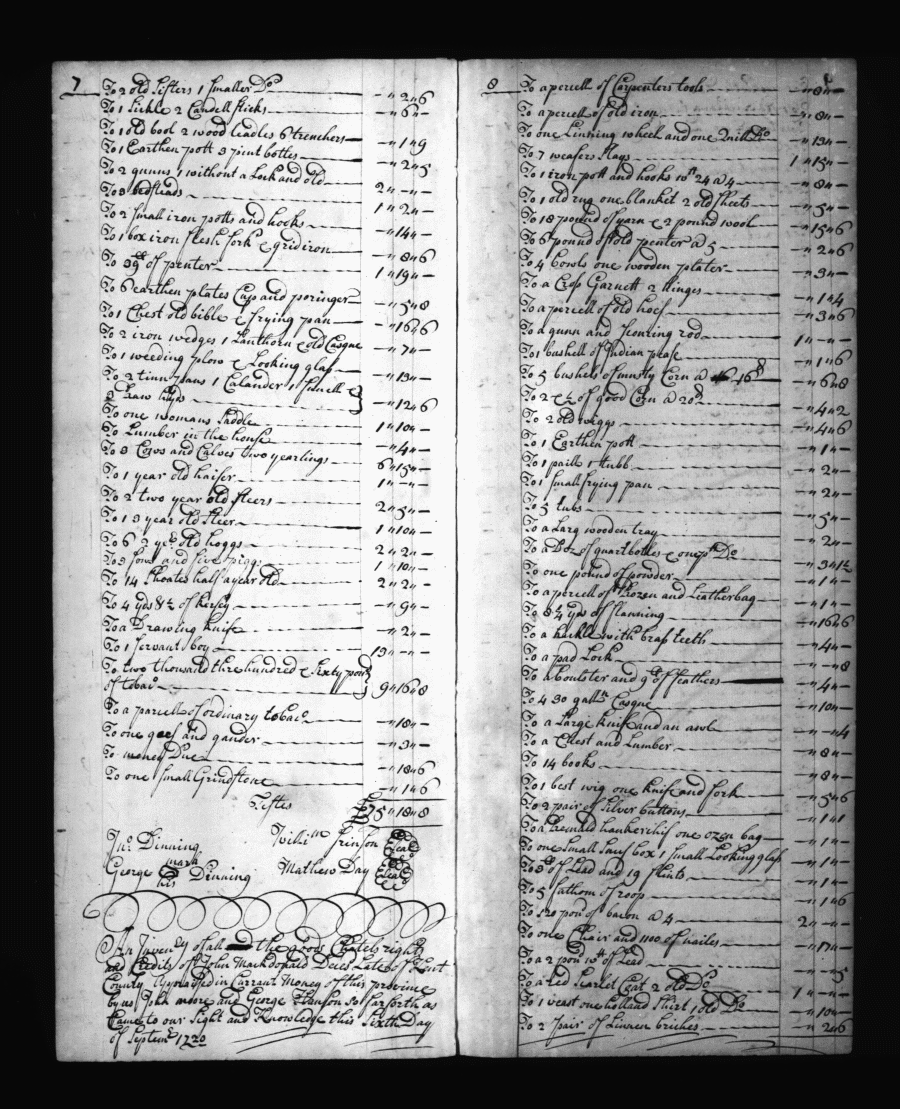 7
To 2 old Sifters 1 Smaller Do — " 2 " 6
To 1 Sickle 2 Candell sticks — " 6 " —
To 1 old bool 2 wood leadles 6 trenchers — " 1 " 9
To 1 Earthen pott 3 pint botles — " 2 " 5
To 2 gunns 1 without a Lock and old 2 " — " —
To 3 bedsteads 1 " 2 " —
To 2 Small iron potts and hooks — " 14 " —
To 1 box iron flesh fork & gridiron — " 8 " 6
To 39lb of peuter 1 " 19 " —
To 6 earthen plates Cup and poringer — " 5 " 8
To 1 Chest old bible & frying pan — " 16 " 6
To 2 iron wedges 1 Lanthorn & old Casque — " 7 " —
To 1 weeding plow & Looking glas — " 13 " —
To 2 tinn pans 1 Calander 1 funell &
2 — " 12 " 6
To one womans Saddle 1 " 10 " —
To Lumber in the house — " 4 " —
To 3 Cows and Calves two yearlings 6 " 15 " —
To 1 year old haifer 1 " — " —
To 2 two year old steers 2 " 5 " —
To 1 3 year old steer 1 " 10 " —
To 6 2 yer old hoggs 2 " 2 " —
To 3 sows and five piggs 1 " 10 " —
To 14 Shoates half a year old 2 " 2 " —
To 4 yds & ½ of kersey — " 9 " —
To a Drawing knife — " 2 " —
To 1 Servant boy 13 " — " —
To two thousand thre hundred & Sixty pound
of tobaco 9 " 16 " 8
To a parcell of ordinary tobaco — " 18 " —
To one gees and gander — " 3 " —
To money Due — " 18 " 6
To one Small Grindstone — " 1 " 6
Testes £75 " 18 " 8
Jno Dinning Willim
George his mark Dinning Mathew Day Seal
An Inventy of all and the goods Chatels rights
and Credits of John Mackdonald Decesd Late of Kent
County Appraised in Currant Money of this province
by us John more and George Hanson So far forth as
Came to our Sight and Knowledge this Sixth Day
of Septemr 1720
8
To a percell of Carpenters tools — " 8 " —
To a percell of old iron — " 8 " —
To one Linning wheel and one Do — " 13 " —
To 7 weafers Slays 1 " 15 " —
To 1 iron pott and hooks wt 24 @ 4 — " 8 " —
To 1 old rug one blanket 2 old sheets — " 5 " —
To 18 pound of yarn & 2 pound wool — " 15 " 6
To 6 pound of old peuter @ 5 — " 2 " 6
To 4 bowls one wooden plater — " 3 " —
To a Cros Garnett 2 hinges — " 1 " 4
To a percell of old hoes — " 3 " 6
To a gunn and rod 1 " — " —
To 1 bushell of Indian pease — " 1 " 6
To 5 bushels of musty Corn @ 16d — " 6 " 8
To 2 & ½ of good Corn @ 20d — " 4 " 2
To 2 old wiggs — " 4 " 6
To 1 Earthen pott — " 1 " —
To 1 paile 1 tubb — " 2 " —
To 1 small frying pan — " 2 " —
To 5 tubs — " 5 " —
To a Larg wooden tray — " 2 " —
To a Doz of quart botles & one pt Do — " 3 " 1½
To one pound of powder — " 1 " —
To a percell of Rozen and Leatherbag — " 1 " —
To 8¼ yds of — " 16 " 6
To a hackle with bras teeth — " 4 " —
To a pad Lock — " — " 8
To a boulster and 9lb of feathers — " 4 " —
To 4 30 galln Casque — " 10 " —
To a Large knife and an awl — " — " 4
To a Chest and Lumber — " 8 " —
To 14 books — " 8 " —
To 1 best wig one knife and fork — " 5 " 6
To 2 pair of Silver buttons — " 1 " 1
To a hankerchif one ozen bag — " 1 " —
To one Small Snuf box 1 Small Looking glass — " 1 " —
of Lead and 19 flints — " 1 " —
To 5 fathom of roop — " 1 " 6
To 120 pond of bacon @ 4 2 " — " —
To one Chair and 1100 of nailes — " 17 " —
To a 2 pond wt of Lead 5
To a Red Scarlet Coat 2 old Do 1 " — " —
To 1 vest one holland Shirt 1 old Do — " 10 " —
To 2 pair of Linnen briches — " 2 " 6